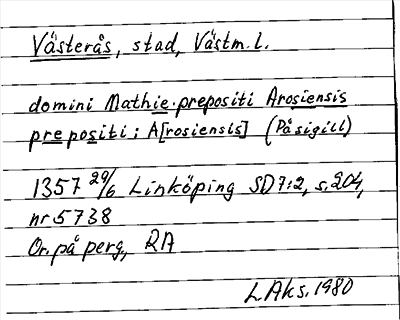 Västerås, stad, Västm. l.
domini Mathie prepositi Arosiensis
prepositi; A[rosiensis] (På sigill)
1357 29/6 Linköping SD 7:2, s. 204,
nr 5738
Or. på perg., RA
L Aks. 1980